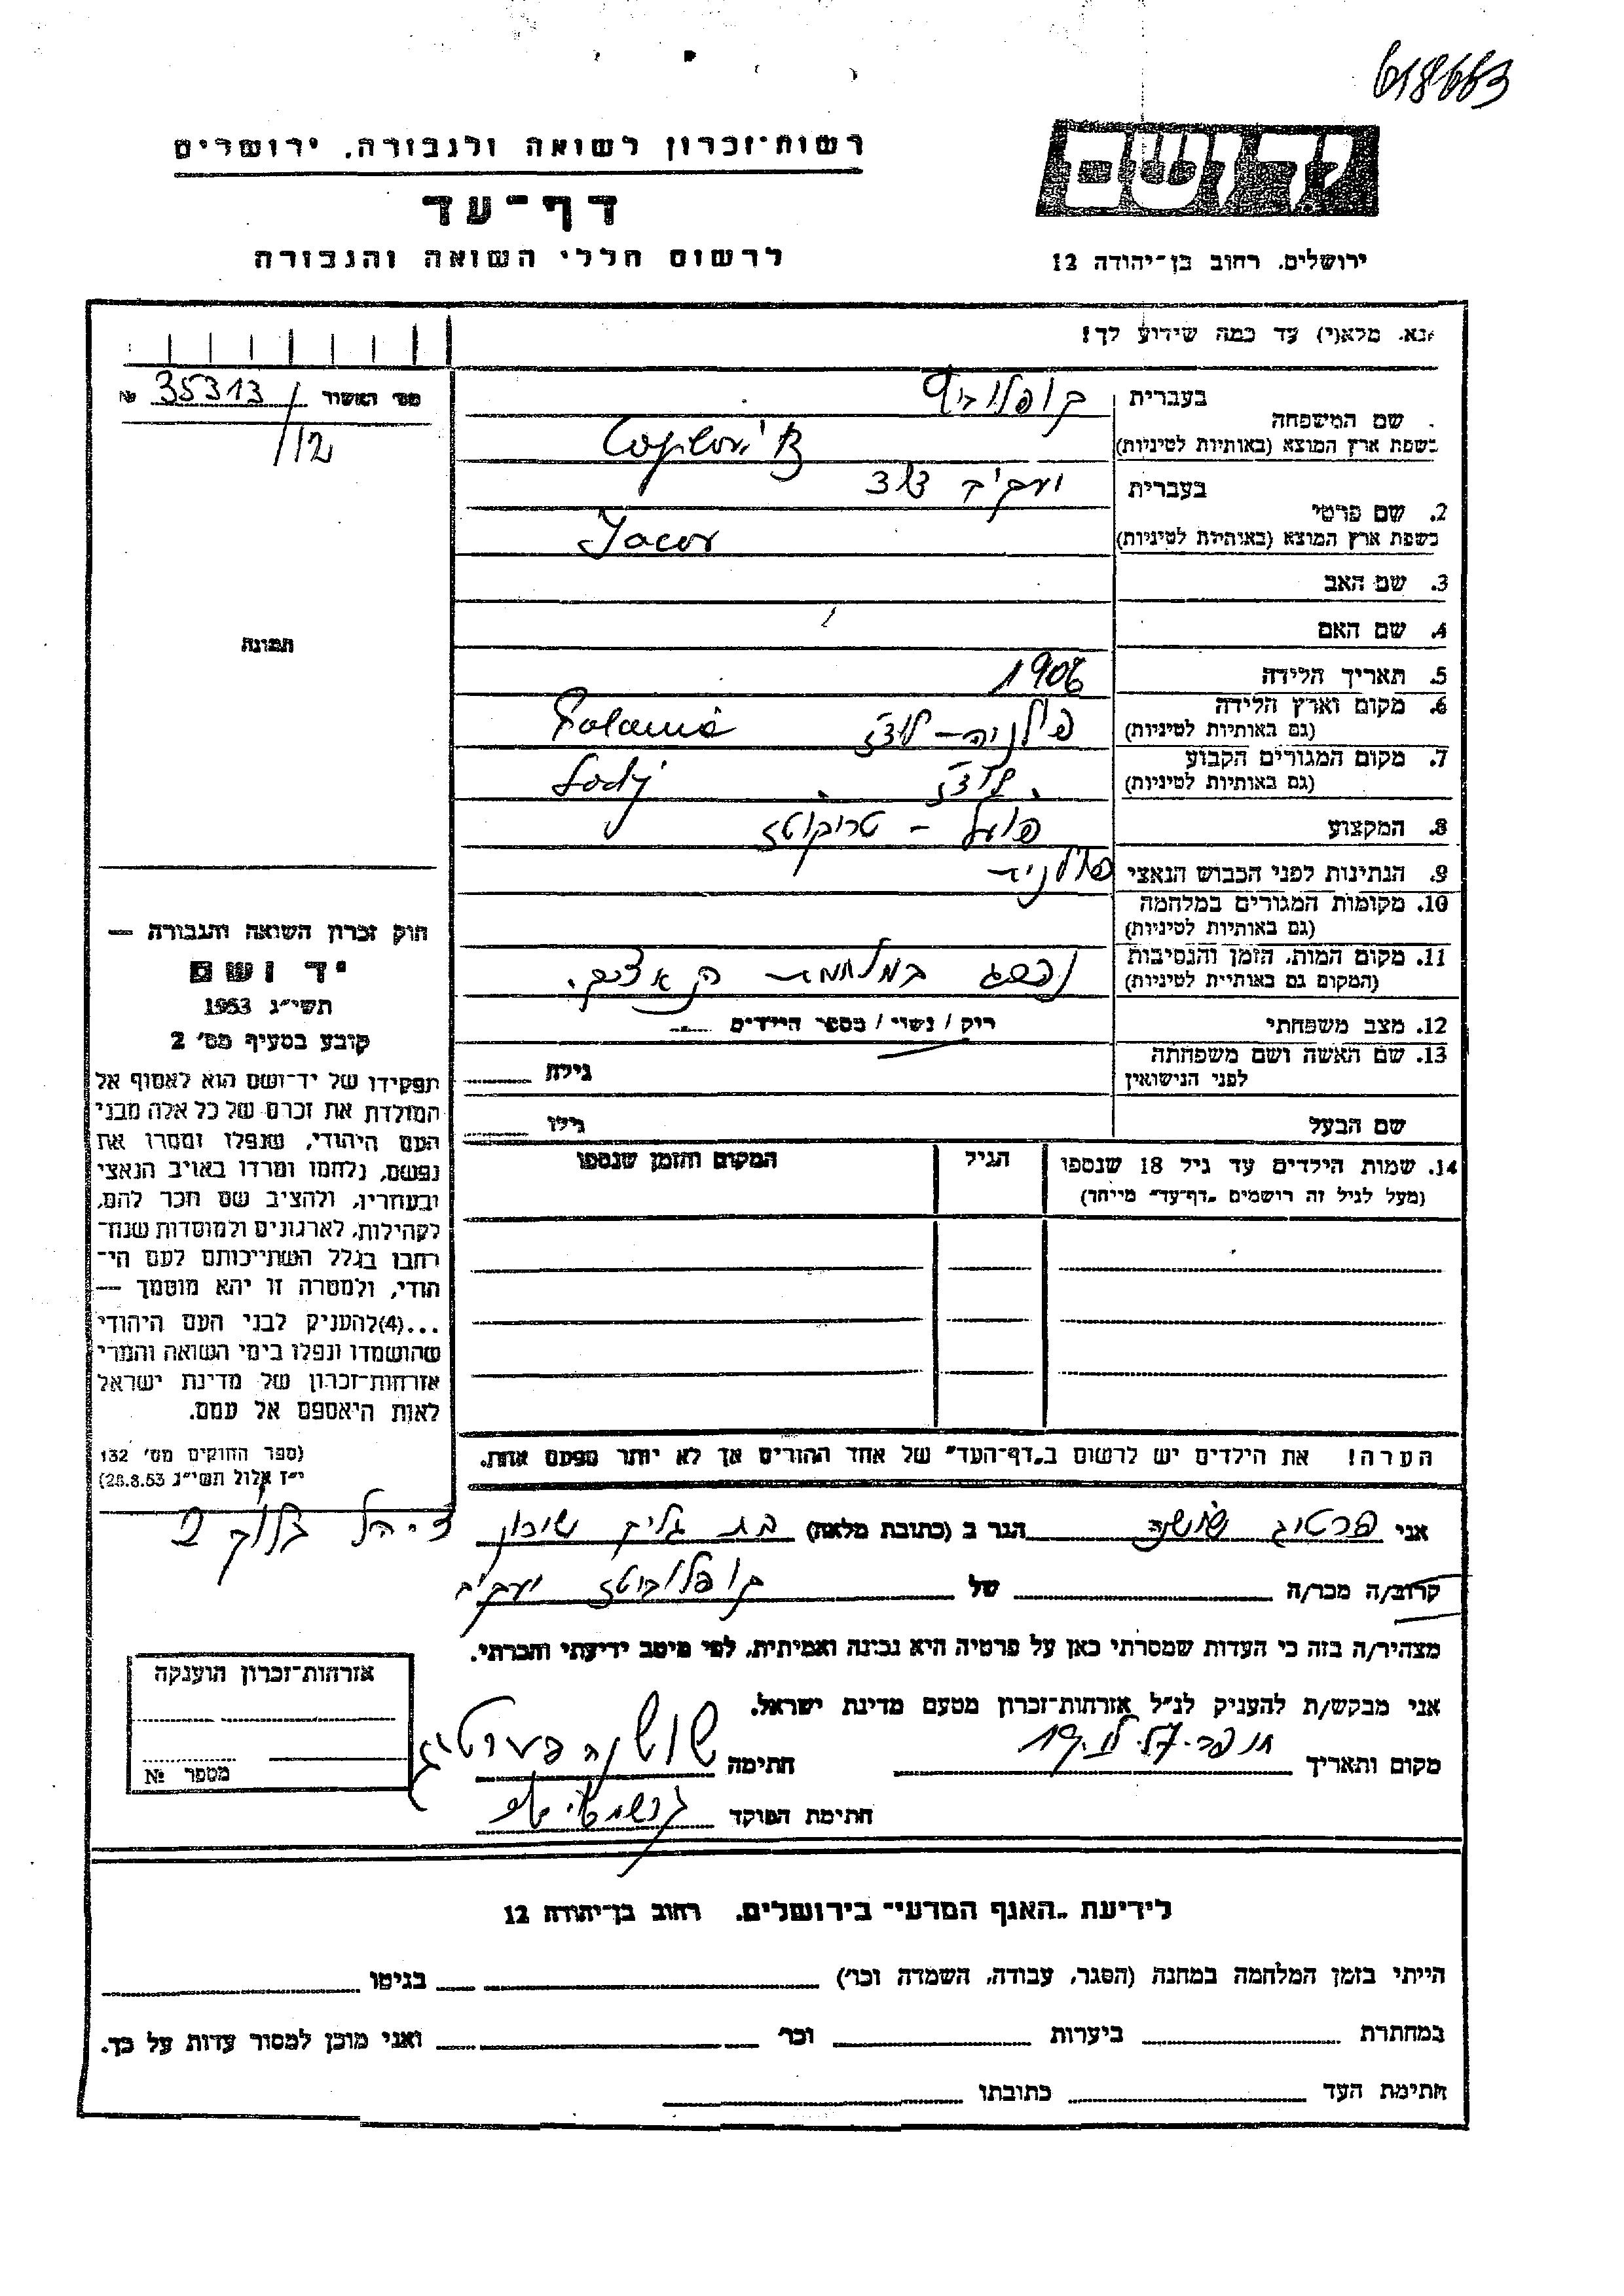 618663
רשות־זכרון לשואה ולגבורה, ירושלים
דף־עד
לרשום חללי השואה והגבורה
ירושלים, רחוב בן־יהודה 12
נא, מלא(י) עד כמה שידוע לך!
מס׳ האשור 35313 №
/12
תמונה
שם המשפחה
בעברית קופלוביץ
בשפת ארץ המוצא (באותיות לטיניות)
2. שם פרטי
בעברית יעקב
בשפת ארץ המוצא (באותיות לטיניות) Jacov
3. שם האב
4. שם האם
5. תאריך הלידה 1906
6. מקום וארץ הלידה
(גם באותיות לטיניות) פולניה – לודז
7. מקום המגורים הקבוע
(גם באותיות לטיניות) לודז Lodz
8. המקצוע פועל – טריקוטז
9. הנתינות לפני הכבוש הנאצי פולנית
10. מקומות המגורים במלחמה
(גם באותיות לטיניות)
11. מקום המות, הזמן והנסיבות
(המקום גם באותיות לטיניות) נספה במלחמת הנאצים.
12. מצב משפחתי רוק / נשוי / מספר הילדים
13. שם האשה ושם משפחתה
לפני הנישואין גילה
שם הבעל גילו
14. שמות הילדים עד גיל 18 שנספו הגיל המקום והזמן שנספו
(מעל לגיל זה רושמים „דף־עד״ מיוחד)
הערה! את הילדים יש לרשום ב„דף־העד״ של אחד ההורים אך לא יותר מפעם אחת.
חוק זכרון השואה והגבורה —
יד ושם
תשי״ג 1953
קובע בסעיף מס׳ 2
תפקידו של יד־ושם הוא לאסוף אל
המולדת את זכרם של כל אלה מבני
העם היהודי, שנפלו ומסרו את
נפשם, נלחמו ומרדו באויב הנאצי
ובעוזריו, ולהציב שם וזכר להם,
לקהילות, לארגונים ולמוסדות שנח־
רבו בגלל השתייכותם לעם הי־
הודי, ולמטרה זו יהא מוסמך —
...(4) להעניק לבני העם היהודי
שהושמדו ונפלו בימי השואה והמרי
אזרחות־זכרון של מדינת ישראל
לאות היאספם אל עמם.
(ספר החוקים מס׳ 132
י״ז אלול תשי״ג 28.8.53)
אני פרטיג שושנה הגר ב (כתובת מלאה) בת גלים שיכון צ.י.הל בלוק 2
קרוב/ה מכר/ה של קופלוביטז יעקב
מצהיר/ה בזה כי העדות שמסרתי כאן על פרטיה היא נכונה ואמיתית, לפי מיטב ידיעתי והכרתי.
אני מבקש/ת להעניק לנ״ל אזרחות־זכרון מטעם מדינת ישראל.
מקום ותאריך חתימה שושנה פערטיג
חתימת הפוקד
אזרחות־זכרון הוענקה
מספר №
לידיעת „האגף המדעי״ בירושלים, רחוב בן־יהודה 12
הייתי בזמן המלחמה במחנה (הסגר, עבודה, השמדה וכו׳) בגיטו
במחתרת ביערות וכו׳ ואני מוכן למסור עדות על כך.
חתימת העד כתובתו